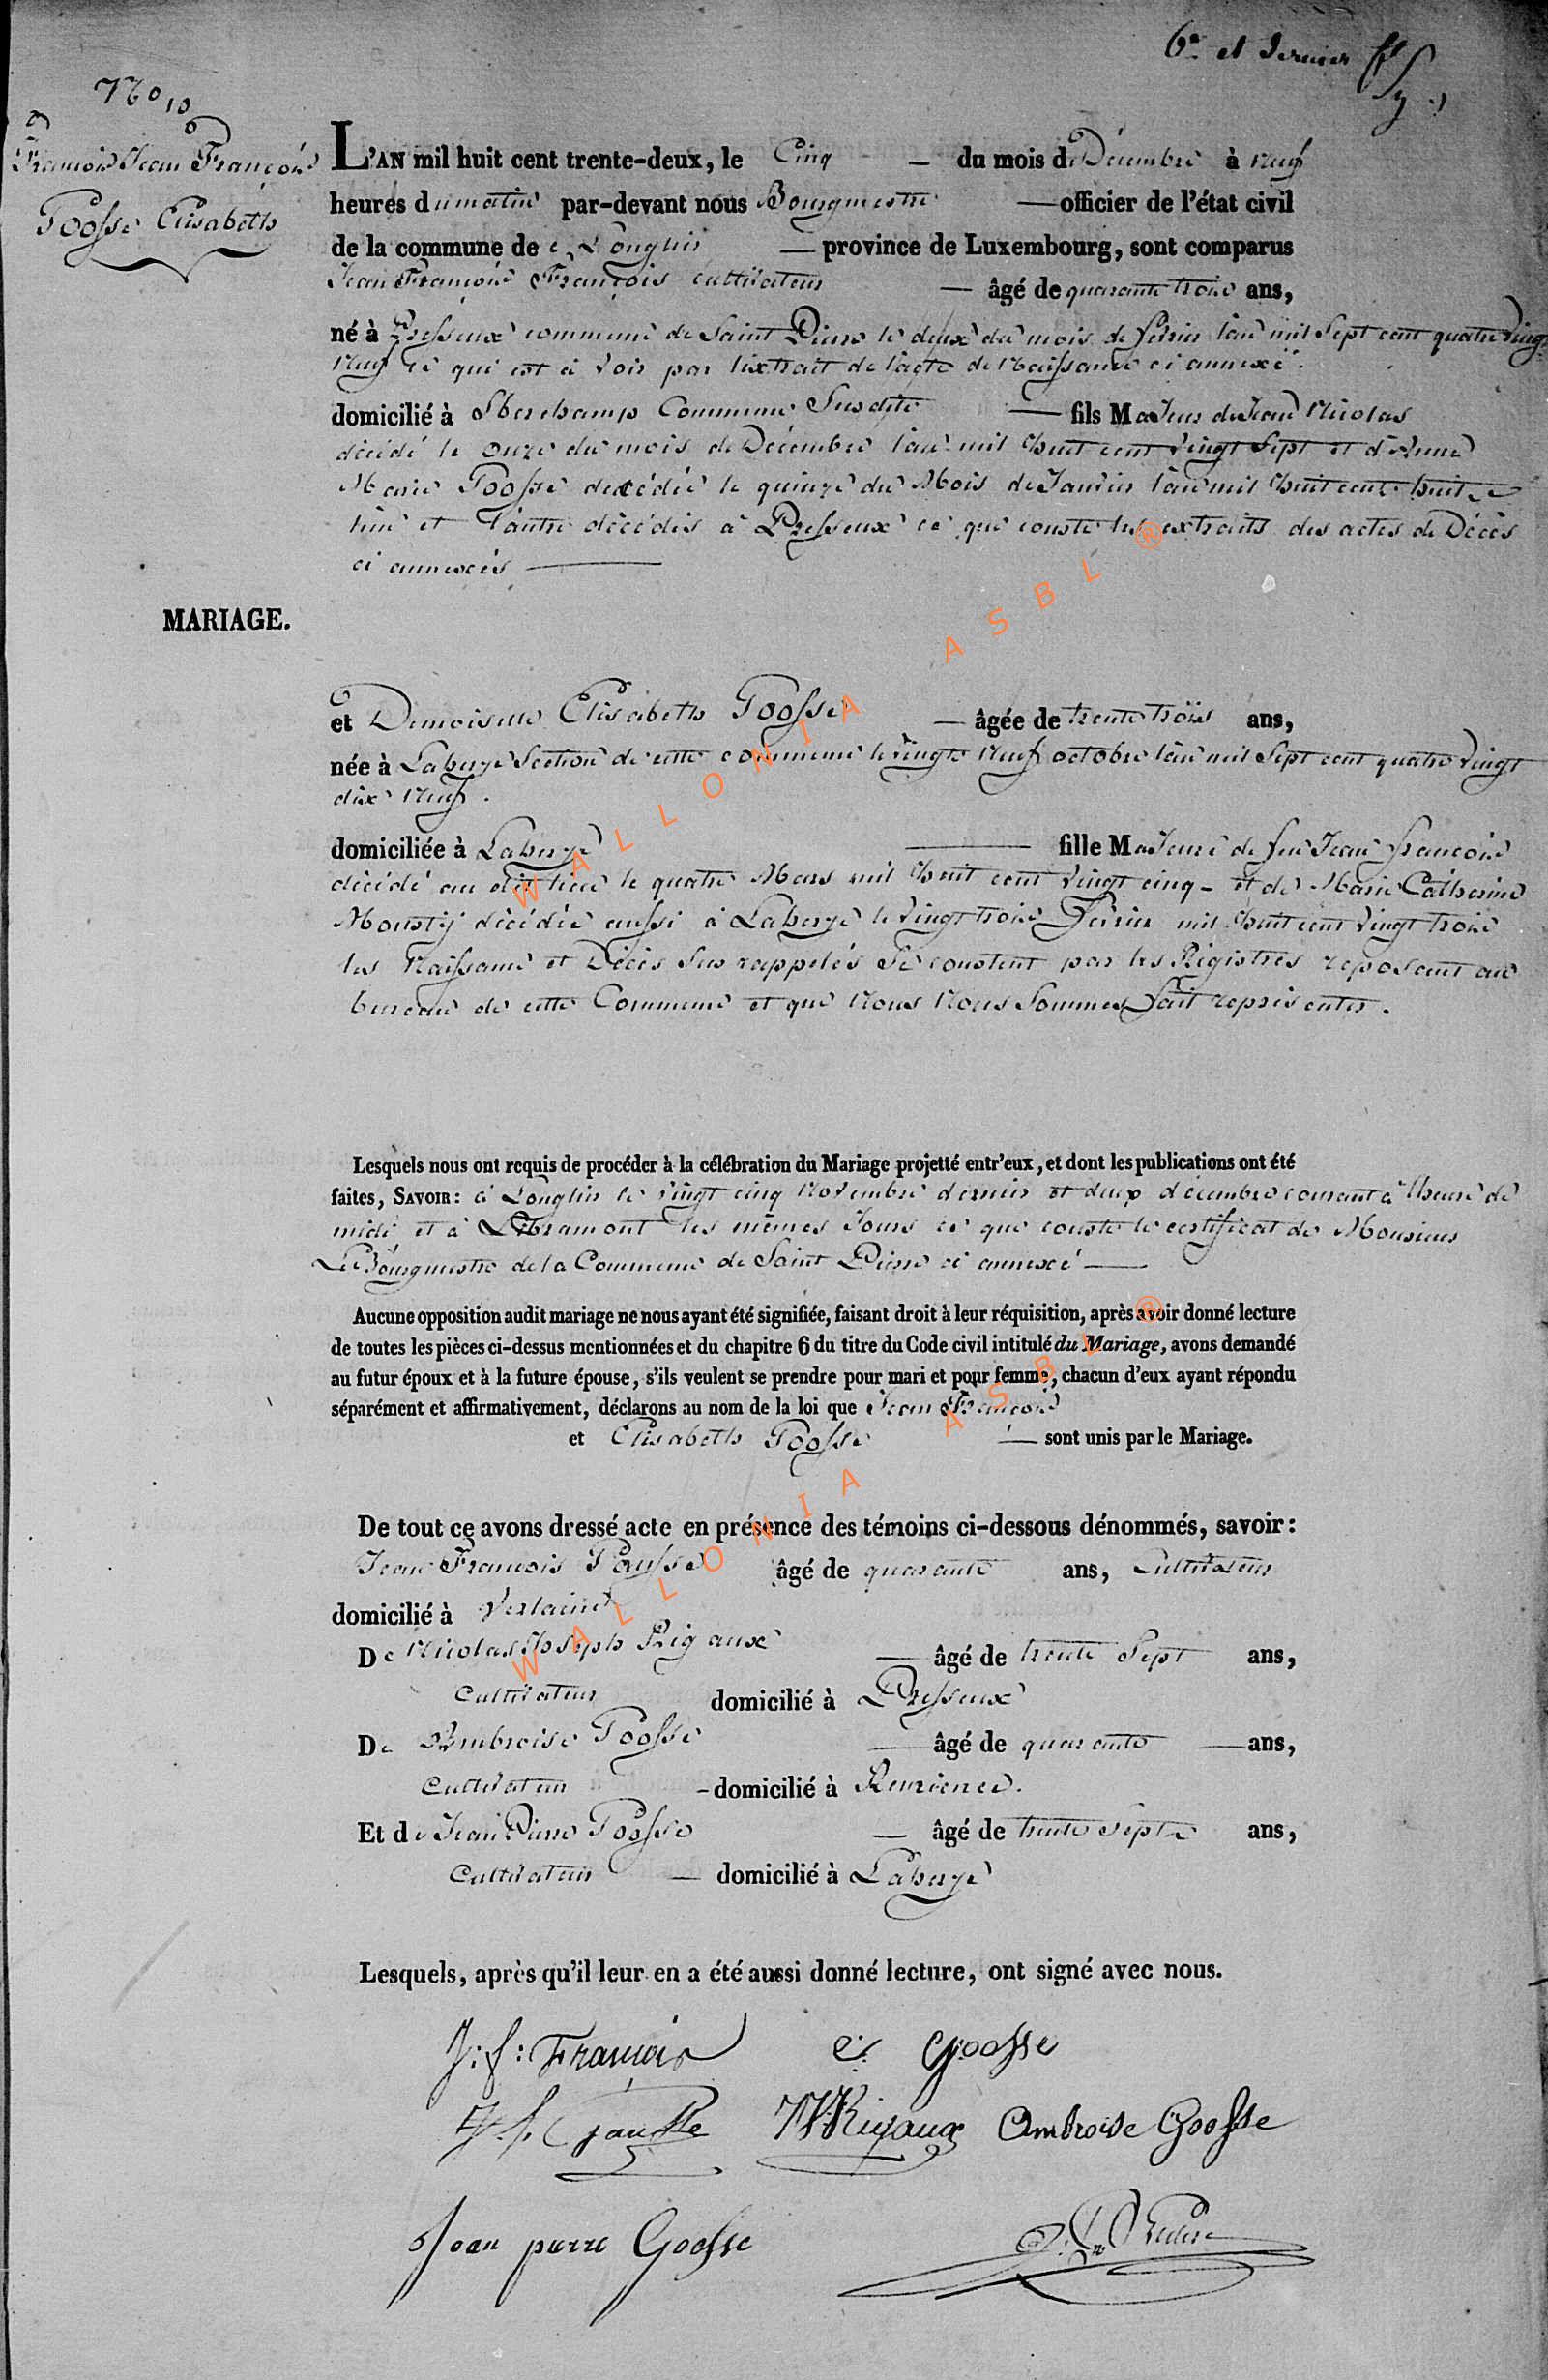 6e et dernier
No 10
François Jean François
Goosse Elisabeth
L'AN mil huit cent trente-deux, le Cinq du mois de Décembre à neuf
heures du matin par-devant nous Bourgmestre officier de l'état civil
de la commune de Longlier province de Luxembourg, sont comparus
Jean François François cultivateur âgé de quarante trois ans,
né à Presseux commune de Saint Pierre le deux du mois de février l'an mil Sept cent quatre vingt
neuf ce qui est à voir par l'extrait de l'acte de Naissance ci annexé.
domicilié à Sberchamp Commune Susdite fils MaJeur de Jean Nicolas
décédé le onze du mois de Décembre l'an mil huit cent vingt Sept et d'Anne
Marie Goosse decédée le quinze du Mois de Janvier l'an mil huit cent huit
l'un et l'autre décédés à Presseux ce que conste les extraits des actes de Décès
ci annexés
MARIAGE.
et Demoiselle Elisabeth Goosse âgée de trente trois ans,
née à Laherye Section de cette commune le vingt Neuf octobre l'an mil Sept cent quatre vingt
dix Neuf.
domiciliée à Laherye fille MaJeure de feu Jean françois
décédé au dit lieu le quatre Mars mil huit cent vingt cinq - et de Marie Catherine
Mousty décédée aussi à Laherye le vingt trois Février mil huit cent vingt trois
les Naissance et Décès Sus rappelés Se constent par les Régistres reposant au
bureau de cette Commune et que Nous Nous Sommes fait représenter.
Lesquels nous ont requis de procéder à la célébration du Mariage projetté entr'eux, et dont les publications ont été
faites, SAVOIR: à Longlier le vingt cinq Novembre dernier et deux décembre courant à l'heure de
midi et à Libramont les mêmes Jours ce que conste le certificat de Monsieur
Le Bourgmestre de la Commune de Saint Pierre ci annexé
Aucune opposition audit mariage ne nous ayant été signifiée, faisant droit à leur réquisition, après avoir donné lecture
de toutes les pièces ci-dessus mentionnées et du chapitre 6 du titre du Code civil intitulé du Mariage, avons demandé
au futur époux et à la future épouse, s'ils veulent se prendre pour mari et pour femme, chacun d'eux ayant répondu
séparément et affirmativement, déclarons au nom de la loi que Jean François
et Elisabeth Goosse sont unis par le Mariage.
De tout ce avons dressé acte en présence des témoins ci-dessous dénommés, savoir:
Jean François Gausse âgé de quarante ans, Cultivateur
domicilié à Verlaine
De Nicolas Joseph Rigaux âgé de trente Sept ans,
Cultivateur domicilié à Presseux
De Ambroise Goosse âgé de quarante ans,
Cultivateur domicilié à
Et de Jean Pierre Goosse âgé de trente Sept ans,
Cultivateur domicilié à Laherye
Lesquels, après qu'il leur en a été aussi donné lecture, ont signé avec nous.
J: f: François e: goosse
J. f. Gausse NJRigaux Ambroise Goosse
Jean pierre Goosse
WALLONIA ASBL ®
WALLONIA ASBL ®